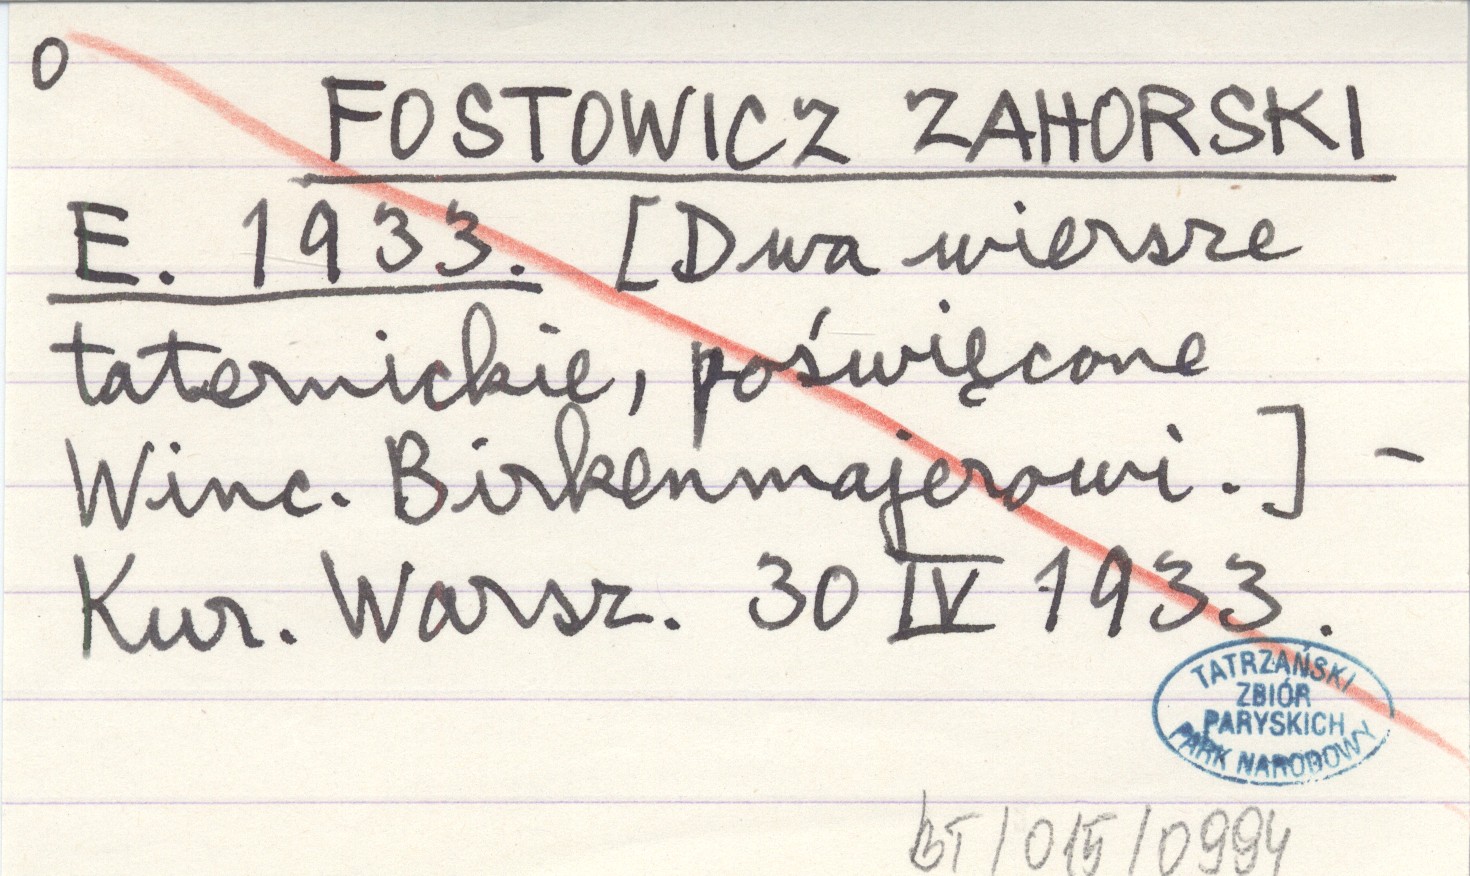 0
FOSTOWICZ ZAHORSKI
E. 1933. [Dwa wiersze
taternickie, poświęcone
Winc. Birkenmajerowi.] -
Kur. Warsz. 30 IV 1933.
TATRZAŃSKI
ZBIÓR
PARYSKICH
PARK NARODOWY
BT/015/0994